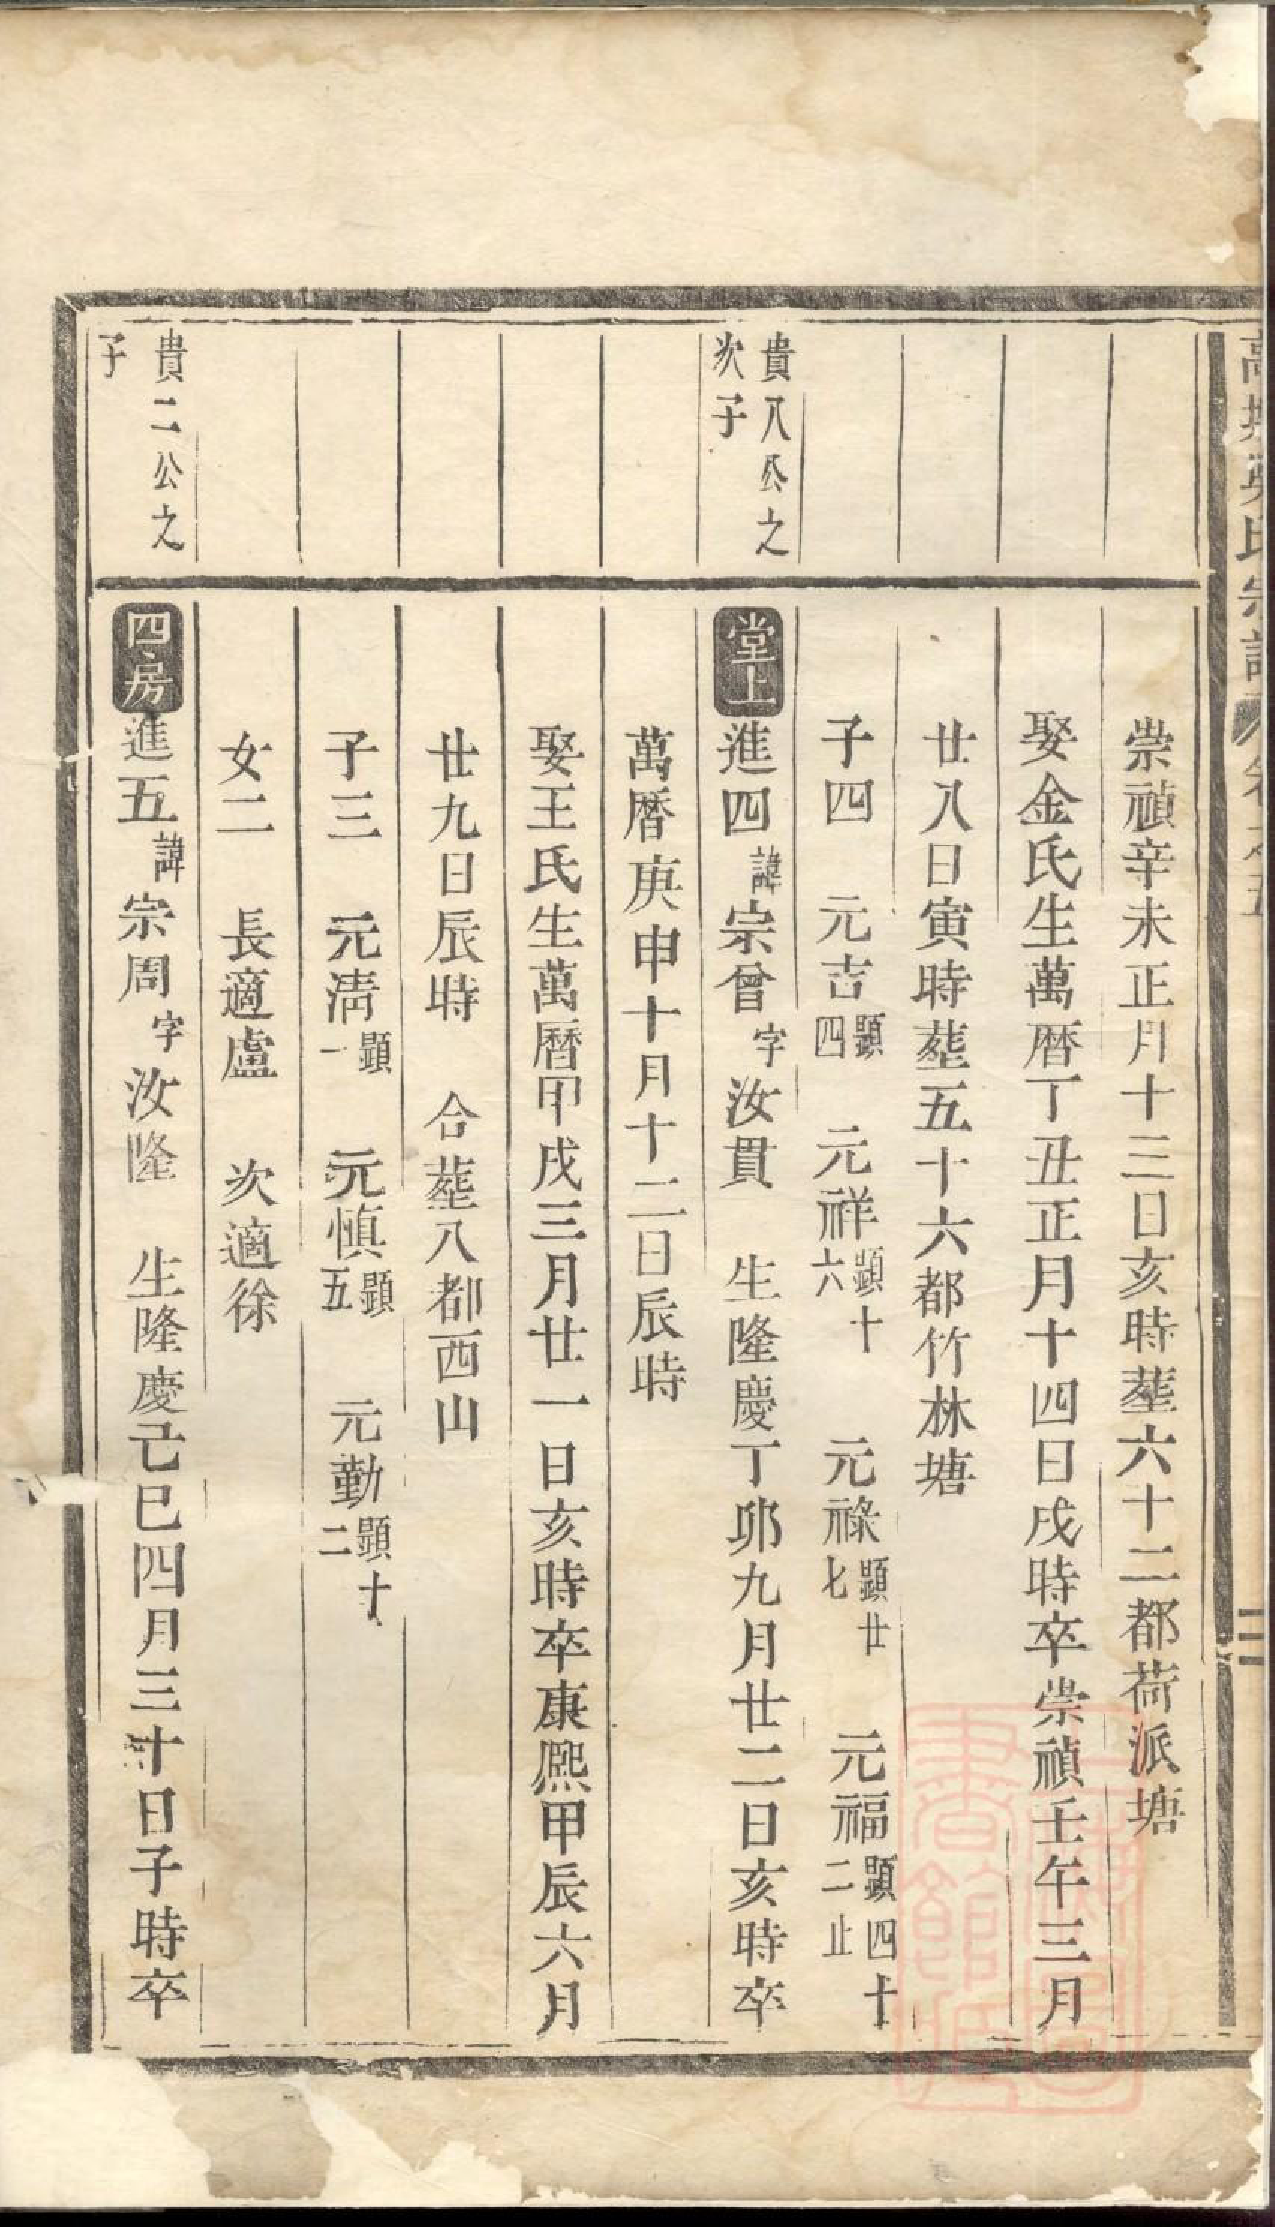 崇禎辛未正月十三日亥時塟六十二都荷派塘
娶金氏生萬曆丁丑正月十四日戌時卒崇禎壬午三月
廿八日寅時塟五十六都竹林塘
子四 元吉顯四 元祥顯十六 元祿顯廿七 元福顯四十二止
貴八公之次子
堂上 進四諱宗曾字汝貫 生隆慶丁卯九月廿二日亥時卒
萬曆庚申十月十二日辰時
娶王氏生萬曆甲戌三月廿一日亥時卒康熙甲辰六月
廿九日辰時 合塟八都西山
子三 元淸顯一 元慎顯五 元勤顯十二
女二 長適盧 次適徐
貴二公之子
四房 進五諱宗周字汝隆 生隆慶己巳四月三十日子時卒